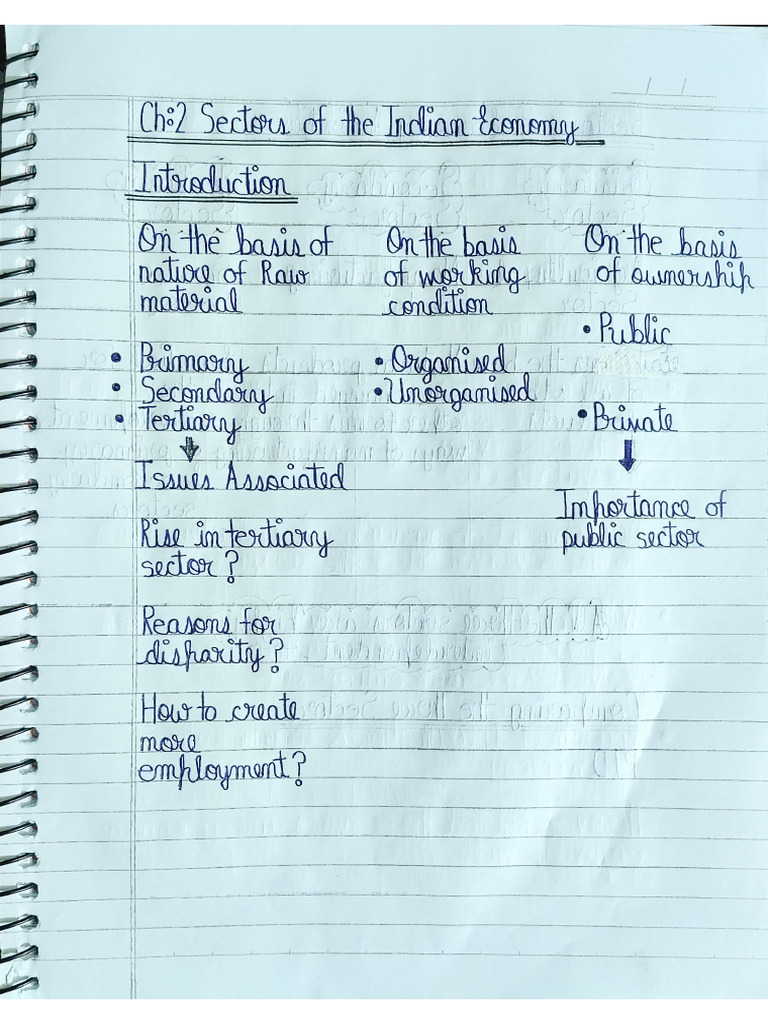 Ch:2 Sectors of the Indian Economy
Introduction
On the basis of
nature of Raw
material
• Primary
• Secondary
• Tertiary
Issues Associated
Rise in tertiary
sector?
Reasons for
disparity?
How to create
more
employment?
On the basis
of working
condition
• Organised
• Unorganised
On the basis
of ownership
• Public
• Private
Importance of
public sector